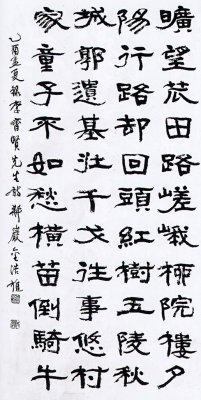 曠望荒田路嵯峨柳院樓夕
陽行路却回頭紅樹五陵秋
城郭遺基壯干戈往事悠村
家童子不知愁橫笛倒騎牛
乙酉孟夏錄李齊賢先生詩 巖 金浩植